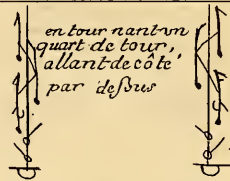 en tour nant vn
quart de tour,
allant de côte'
par deſsus